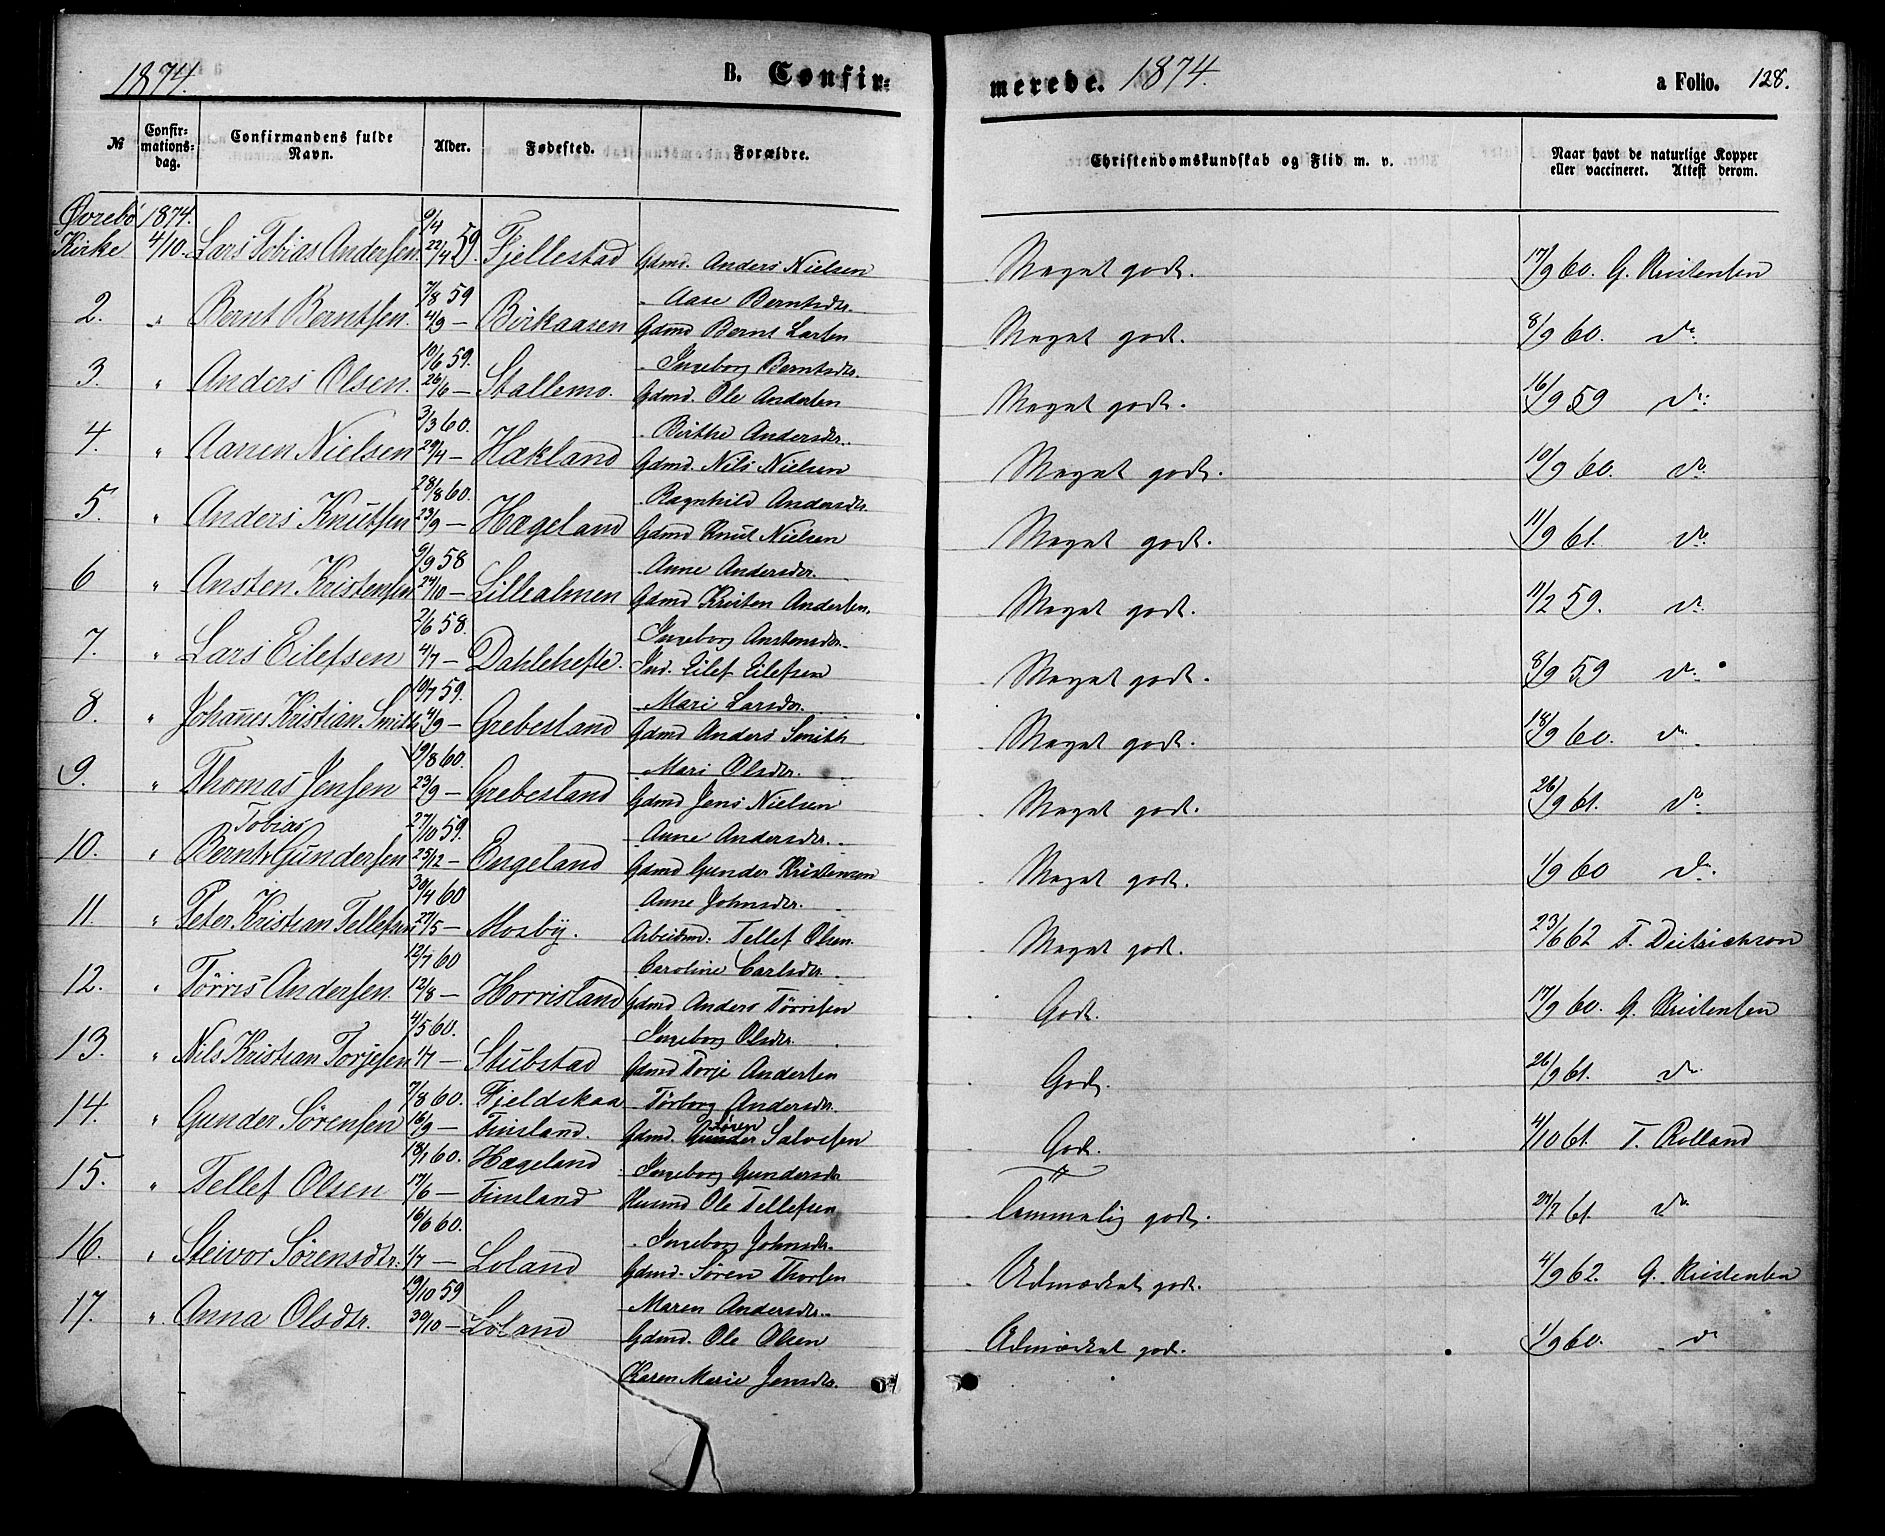 1874. B. Confir= merede. 1874. a Folio. 128.
№ Confir-mations-dag. Confirmandens fulde Navn. Alder. Fødested. Forældre. Christendomskundskab og Flid m. v. Naar havt de naturlige Kopper eller vaccineret. Attest derom.
Øvrebø 1874.
Kirke 4/10. Lars Tobias Andersen 22/4 59. Fjellestad Gdmd. Anders Nielsen Meget godt. 17/9 60.
7/8 59 Aase Berntsdtr.
2. " Bernt Berntsen. 4/9 — Birkaasen Gdmd Bernt Larsen Meget godt. 8/9 60. do
10/6 59. Ingeborg Berntsdtr.
3. " Anders Olsen. 26/6 — Stallemo. Gdmd. Ole Andersen Meget godt. 16/9 59 do
3/3 60. Birthe Andersdtr.
4. " Aanen Nielsen 29/4 — Hækland Gdmd. Nils Nielsen Meget godt. 10/9 60. do
28/8 60. Ragnhild Andersdtr.
5. " Anders Knutsen 23/9 — Hægeland Gdmd Knut Nielsen Meget godt. 11/9 61. do
9/9 58 Anne Andersdtr.
6 " Ansten Kristensen 24/10 — Lillealmen Gdmd Kristen Andersen. Meget godt. 11/2 59. do
2/6 58. Ingeborg Anstensdtr.
7. " Lars Eilefsen 4/7 — Dahlehefte. Ind. Eilef Eilefsen Meget godt. 8/9 59 do
10/7 59. Mari Larsdtr.
8. " Johanes Kristian Smith 4/9 — Grebesland Gdmd Anders Smith Meget godt. 18/9 60. do
19/8 60. Mari Olsdtr.
9. " Thomas Jensen 23/9 — Grebesland Gdmd Jens Nielsen Meget godt. 26/9 61. do
Tobias 27/10 59. Anne Andersdtr.
10. " Bernt Gundersen 25/12 — Engeland Gdmd Gunder Kristensen Meget godt. 1/9 60 do
30/4 60 Anne Johnsdtr.
11. " Peter Kristian Tellefsen 27/5 — Mosby. Arbeidsmd: Tellef Olsen. Meget godt. 23/6 62 T. Dietrichson
12/7 60 Caroline Carlsdtr.
12. " Tørris Andersen. 12/8 — Horrisland Gdmd Anders Tørrisen Godt. 17/9 60.
4/5 60. Ingeborg Olsdtr.
13. " Nils Kristian Torjesen 1/7 — Stubstad Gdmd Torje Andersen Godt. 26/9 61. do
7/8 60. Fjeldskaa Torborg Andersdtr.
14. " Gunder Sørensen 16/9 — Finsland. Gdmd. Søren Salvesen Godt. 4/10 61. T. Rolland
18/1 60. Hægeland Ingeborg Gundersdtr
15. " Tellef Olsen 17/6 — Finsland Husmd Ole Tellefsen Temmelig godt. 27/7 61. do
16/6 60. Ingeborg Johnsdtr.
16. " Steivor Sørensdtr. 1/7 — Loland Gdmd. Søren Thorsen Udmærket godt. 4/9 62.
19/10 59 Maren Andersdtr.
17. " Anna Olsdtr. 30/10 — Loland Gdmd. Ole Olsen Udmærket godt. 1/9 60. do
Karen Marie Jensdtr.